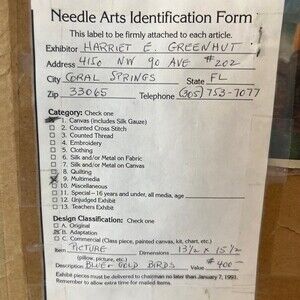 Needle Arts Identification Form
This label to be firmly attached to each article.
Exhibitor HARRIET E. GREENHUT
Address 4150 NW 90 AVE #202
City CORAL SPRINGS State FL
Zip 33065 Telephone (305) 753-7077
Category: Check one
1. Canvas (includes Silk Gauze)
2. Counted Cross Stitch
3. Counted Thread
4. Embroidery
5. Clothing
6. Silk and/or Metal on Fabric
7. Silk and/or Metal on Canvas
8. Quilting
X 9. Multimedia
10. Miscellaneous
11. Special - 16 years and under, all media, age
12. Unjudged Exhibit
13. Teachers Exhibit
Design Classification: Check one
A. Original
B. Adaptation
C. Commercial (Class piece, painted canvas, kit, chart, etc.)
Item PICTURE Dimensions 13½ x 15½
(pillow, picture, etc.)
Description BLUE & GOLD BIRDS Value $400-
Exhibit pieces must be delivered to chairman no later than January 7, 1993.
Remember to allow extra time for mailed items.